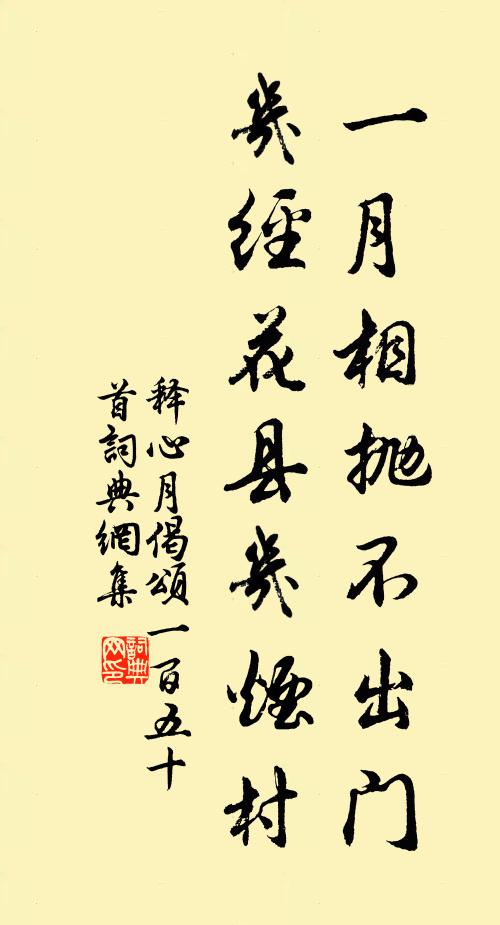 一月相抛不出门
几经花县几烟村
释心月偈颂一百五十
首词典网集
詞典网印